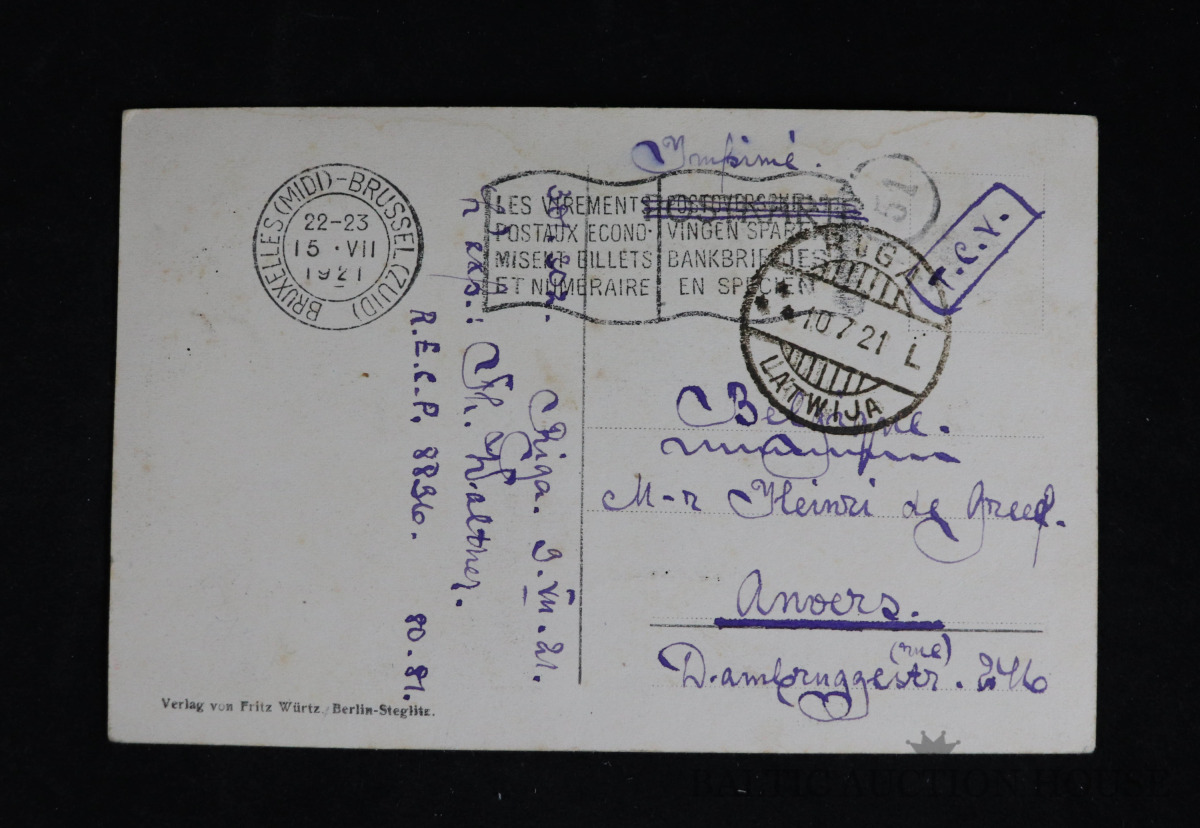 Imprimé.
BRUXELLES (MIDI)-BRUSSEL (ZUID)
22-23
15 · VII
1921
LES VIREMENTS
POSTAUX ECONO-
MISENT BILLETS
ET NUMERAIRE
VINGEN SPAREN
BANKBRIEFJES
EN SPECIËN
51
T.C.V.
RIGA
10 7 21 L
LATWIJA
Belgique.
M-r Heinri de Greef.
Anvers.
(rue)
Dambruggestr. 246
Riga. 9. VII. 21.
exp.: Th. Waltner.
R.E.C.P. 8836. 80.81.
Verlag von Fritz Würtz, Berlin-Steglitz.
BALTIC AUCTION HOUSE